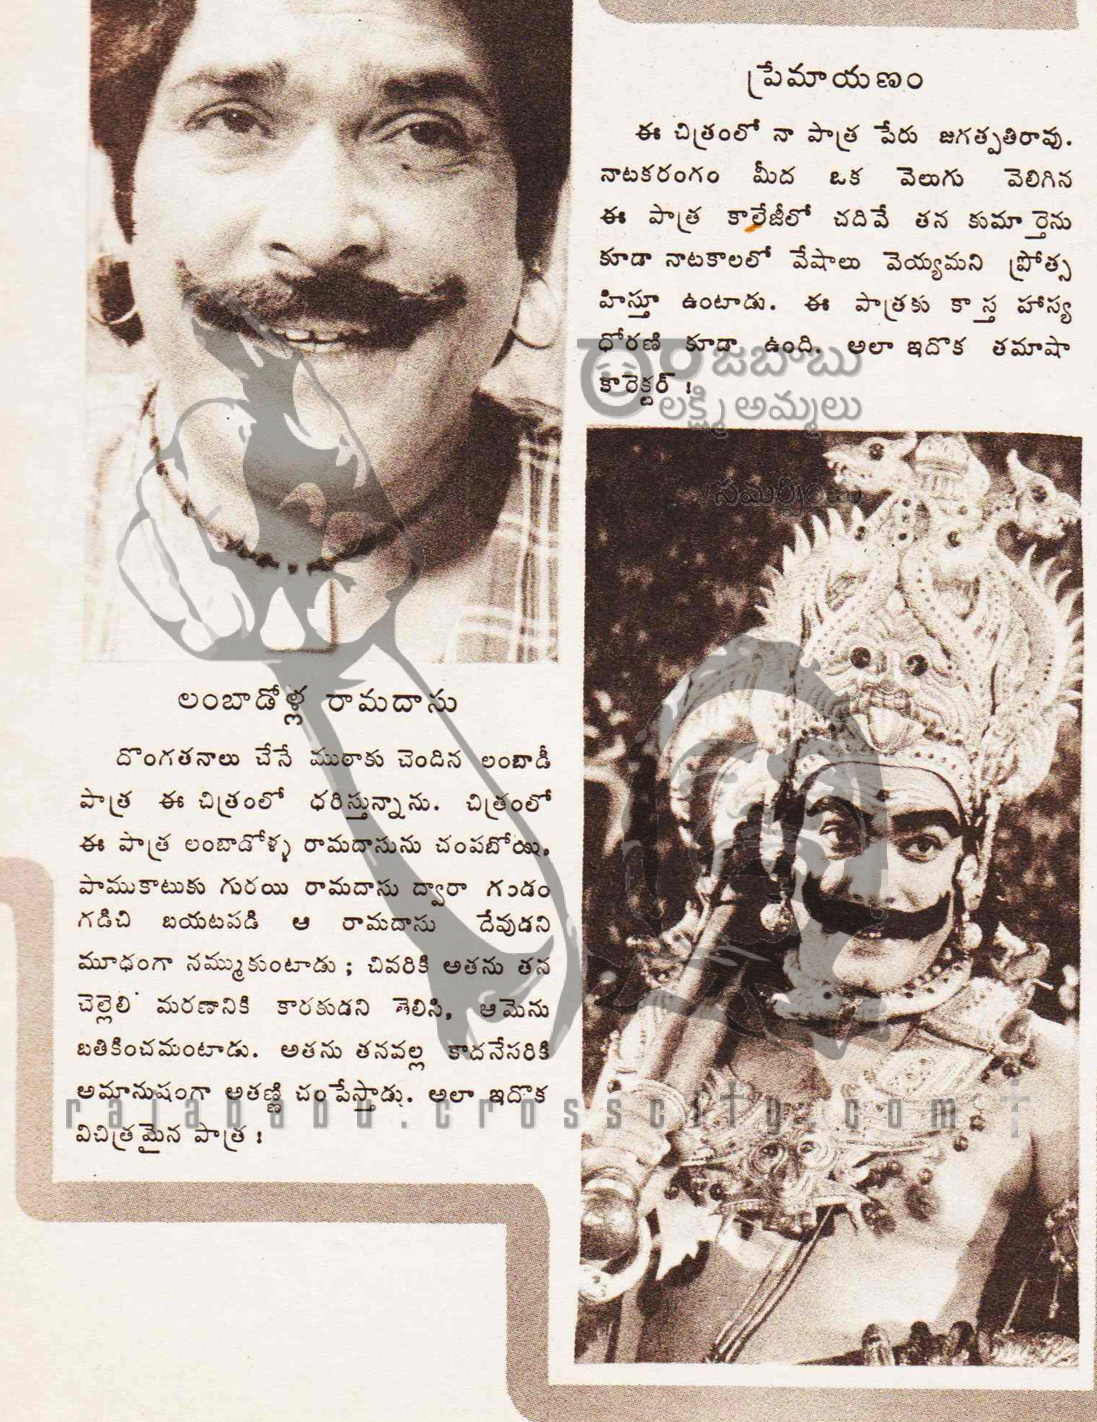 ప్రేమాయణం
ఈ చిత్రంలో నా పాత్ర పేరు జగత్పతిరావు.
నాటకరంగం మీద ఒక వెలుగు వెలిగిన
ఈ పాత్ర కాలేజీలో చదివే తన కుమార్తెను
కూడా నాటకాలలో వేషాలు వెయ్యమని ప్రోత్స
హిస్తూ ఉంటాడు. ఈ పాత్రకు కాస్త హాస్య
ధోరణి కూడా ఉంది. అలా ఇదొక తమాషా
కారెక్టర్ !
రాజబాబు
లక్ష్మి అమ్మలు
లంబాడోళ్ల రామదాసు
దొంగతనాలు చేసే ముఠాకు చెందిన లంబాడీ
పాత్ర ఈ చిత్రంలో ధరిస్తున్నాను. చిత్రంలో
ఈ పాత్ర లంబాడోళ్ళ రామదాసును చంపబోయి,
పాముకాటుకు గురయి రామదాసు ద్వారా గండం
గడిచి బయటపడి ఆ రామదాసు దేవుడని
మూఢంగా నమ్ముకుంటాడు ; చివరికి అతను తన
చెల్లెలి మరణానికి కారకుడని తెలిసి, ఆమెను
బతికించమంటాడు. అతను తనవల్ల కాదనేసరికి
అమానుషంగా అతణ్ణి చంపేస్తాడు. అలా ఇదొక
విచిత్రమైన పాత్ర !
rajababu.crosscity.com